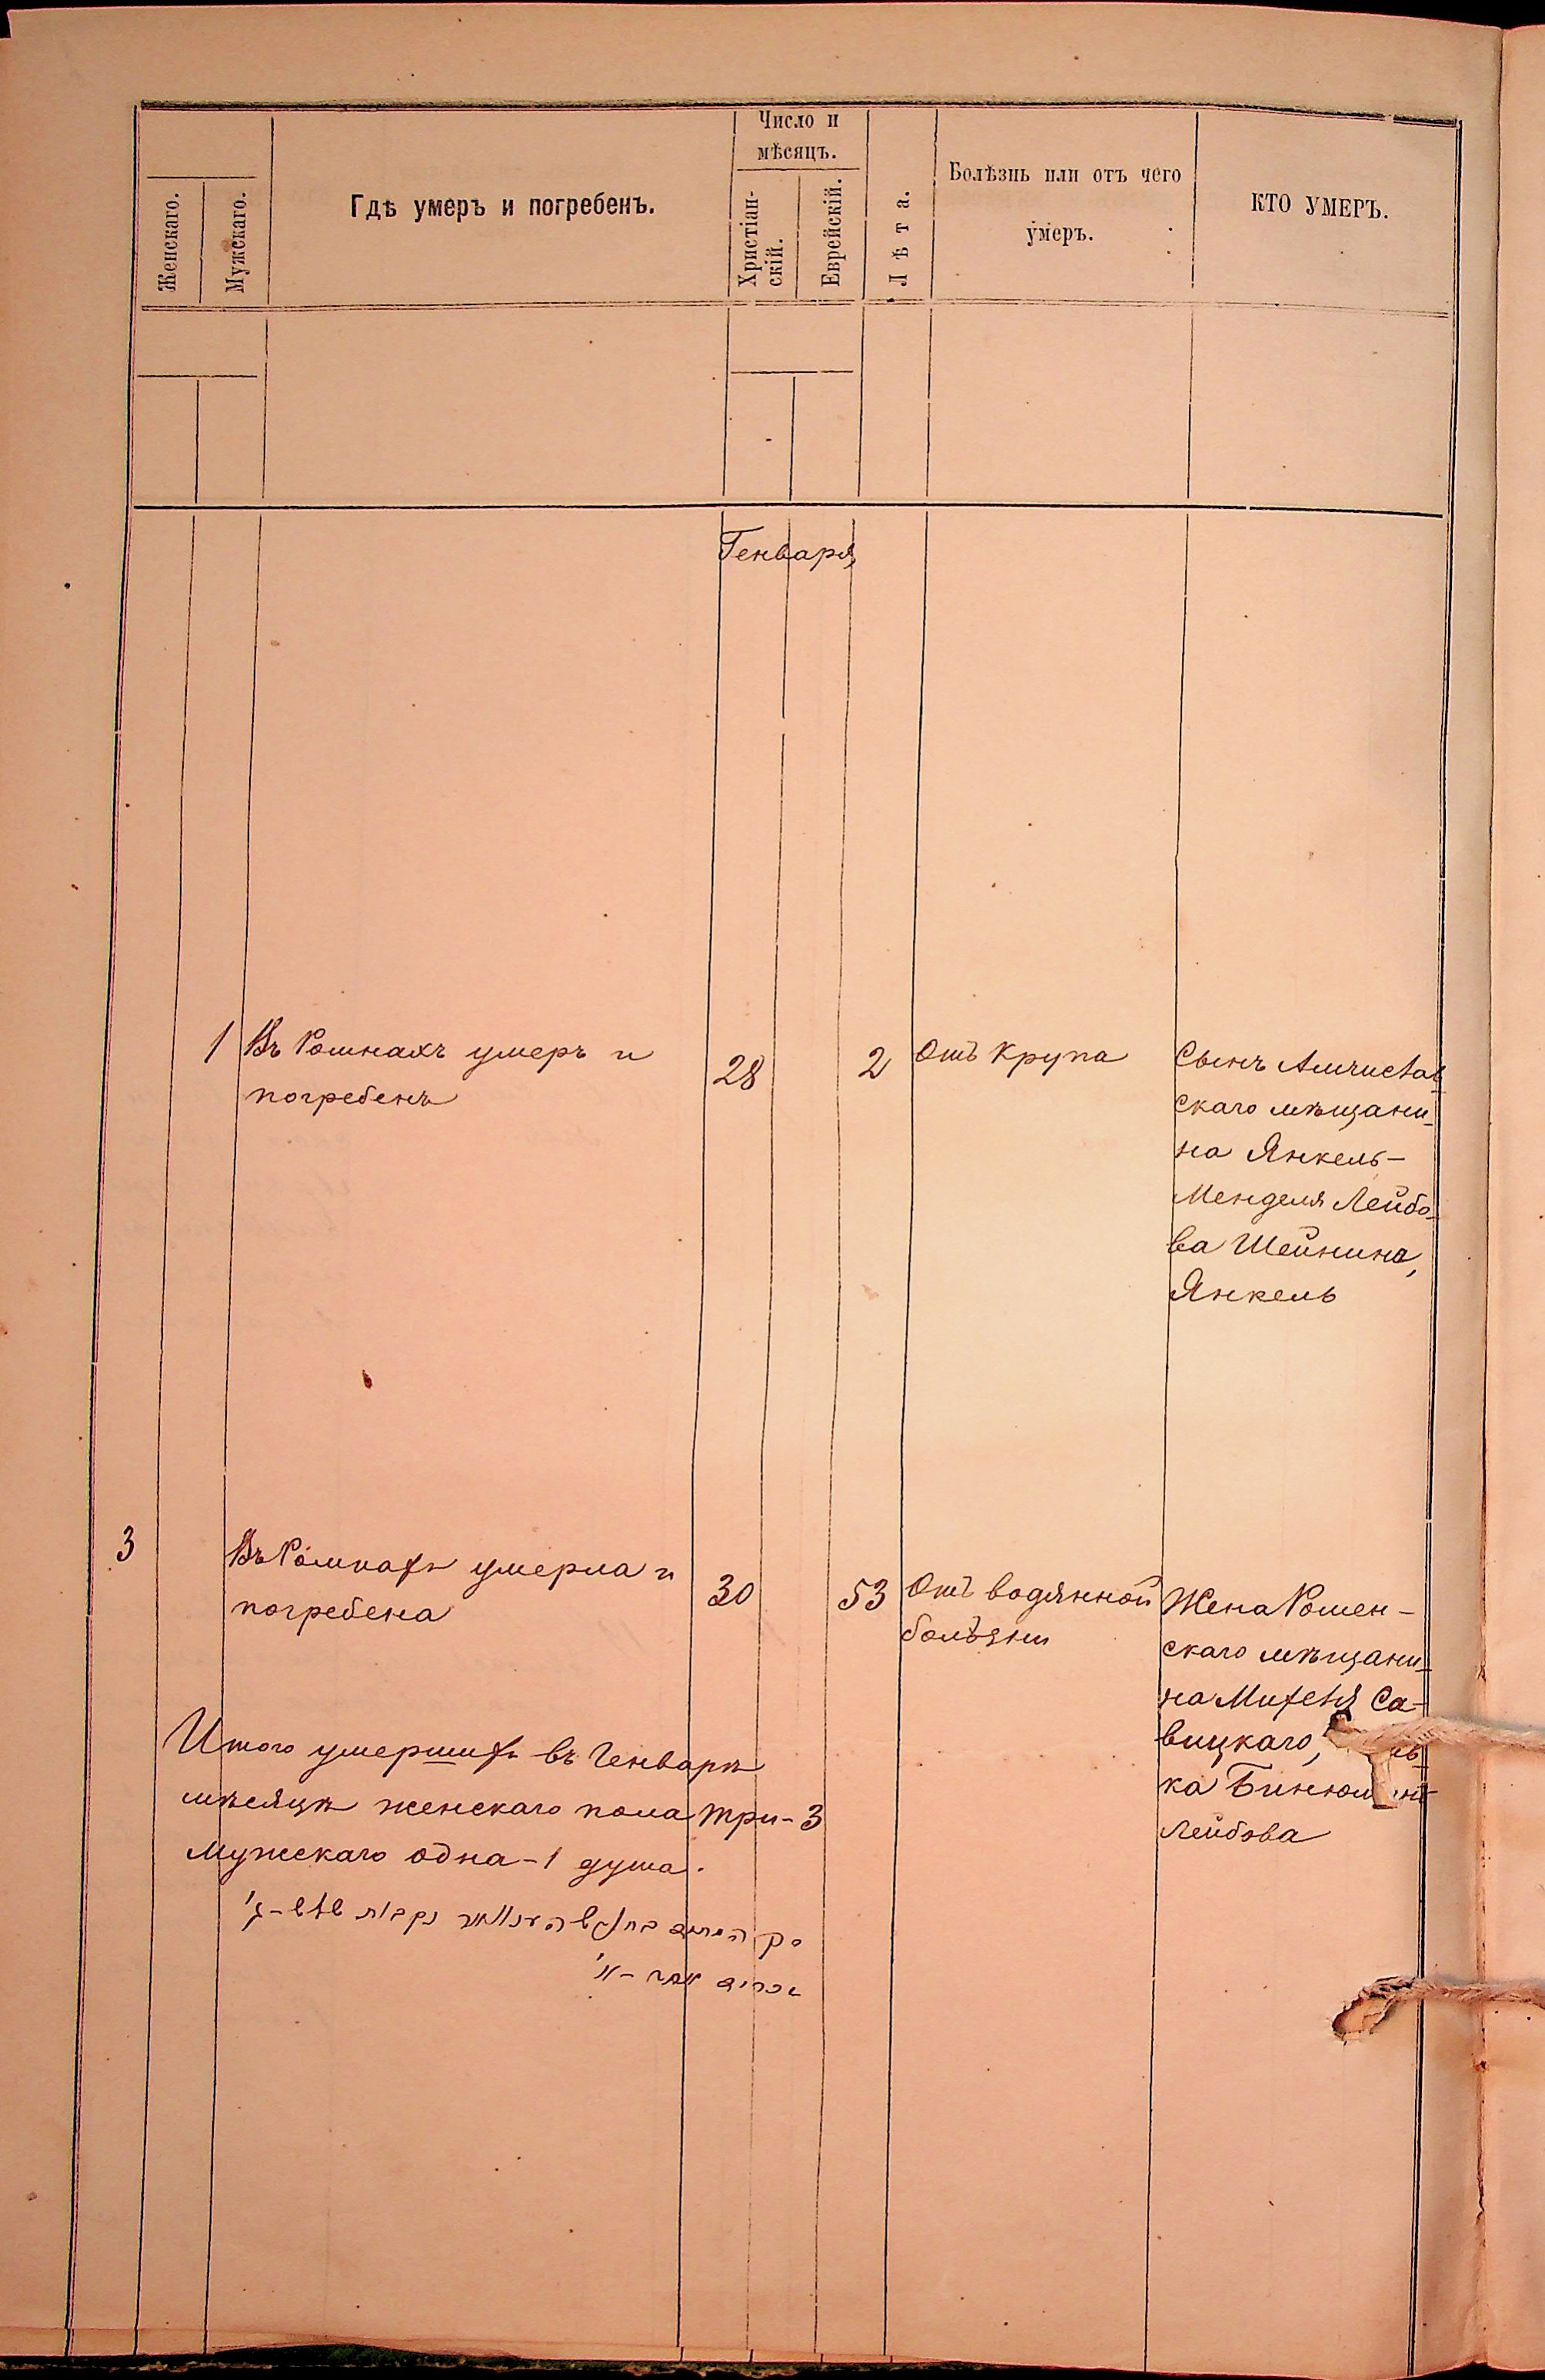 Число и
мѣсяцъ.
Женскаго.
Мужскаго.
Гдѣ умеръ и погребенъ.
Христіан-
скій.
Еврейскій.
Лѣта.
Болѣзнь или отъ чего
умеръ.
КТО УМЕРЪ.
Генваря
1 Въ Ромнахъ умеръ и
погребенъ
28
2
Отъ крупа
Сынъ
скаго мѣщани-
на Янкель-
Менделя Лейбо-
ва Шейнина,
Янкель
3
Въ Ромнахъ умерла и
погребена
30
53
Отъ водянной
болѣзни
Жена Ромен-
скаго мѣщани-
на Михеля Са-
вицкаго,
ка
Лейбова
Итого умершихъ въ Генварѣ
мѣсяцѣ женскаго пола три-3
Мужскаго одна-1 душа.